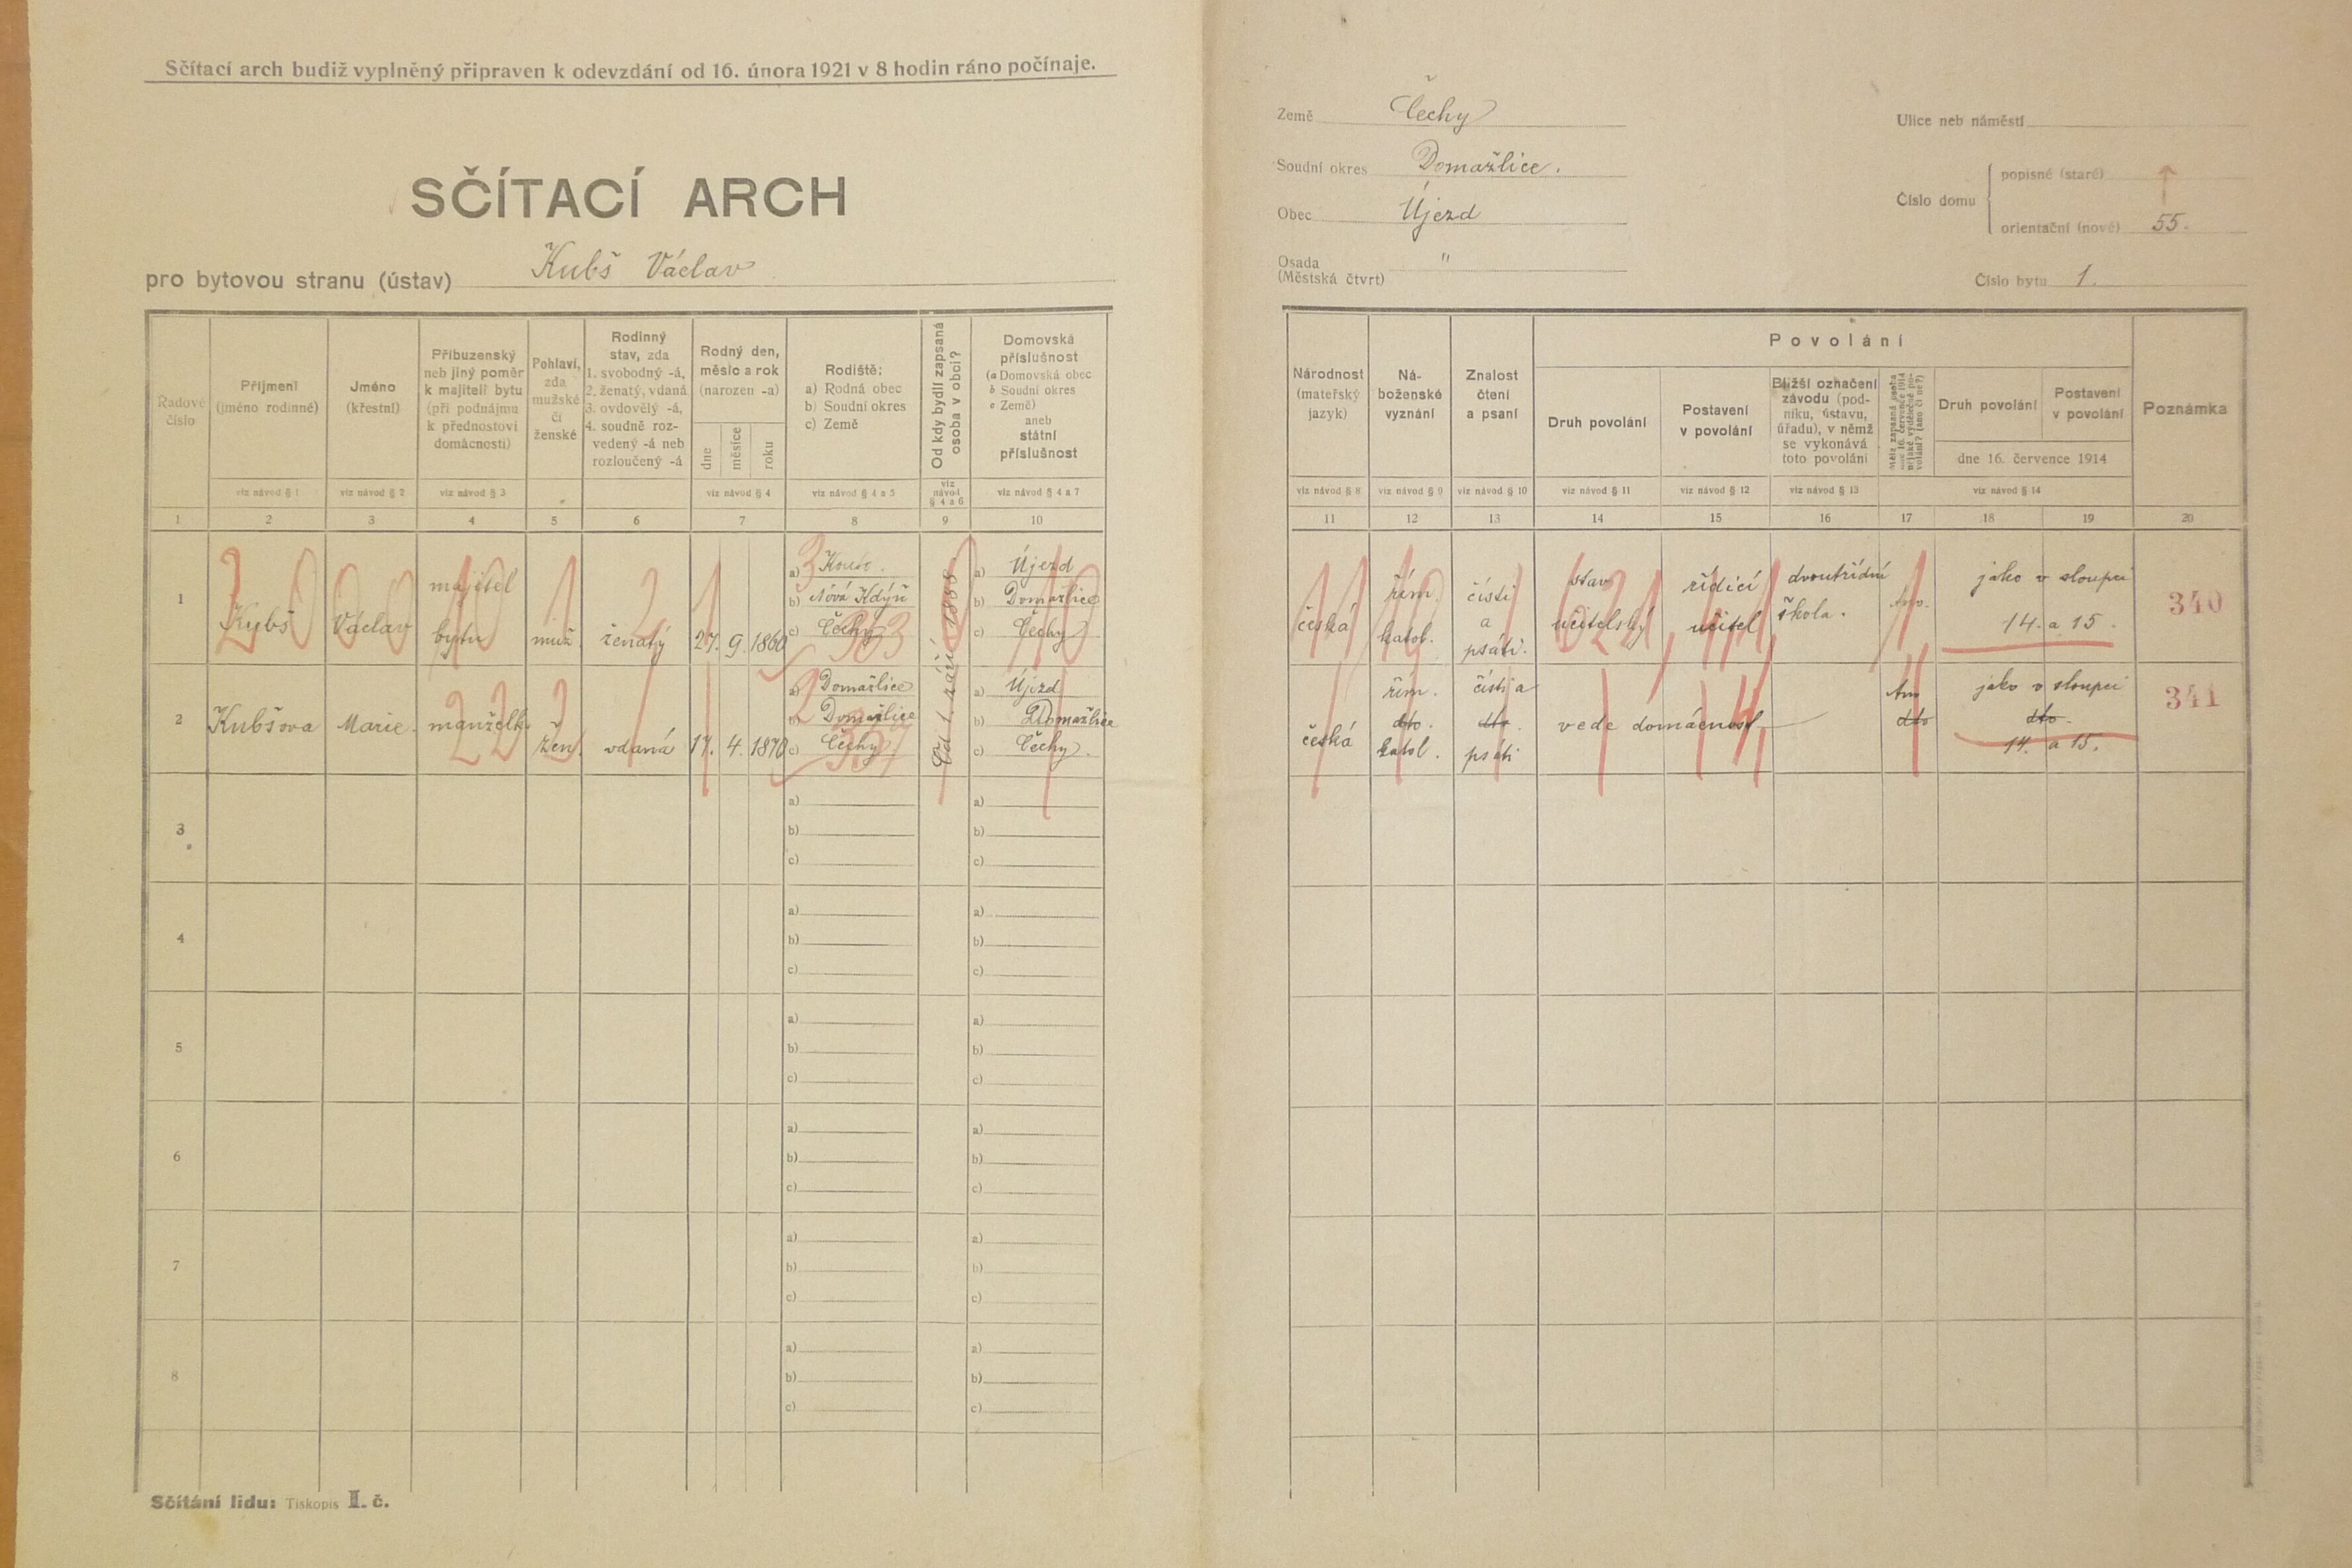 Sčítací arch budiž vyplněný připraven k odevzdání od 16. února 1921 v 8 hodin ráno počínaje.
SČÍTACÍ ARCH
pro bytovou stranu (ústav) Kubš Václav
Země Čechy
Soudní okres Domažlice.
Obec Újezd
Osada "
(Městská čtvrt)
Ulice neb náměstí
Číslo domu
popisné (staré)
orientační (nové) 55.
Číslo bytu 1.
Řadové číslo
Příjmení (jméno rodinné)
Jméno (křestní)
Příbuzenský neb jiný poměr k majiteli bytu (při podnájmu k přednostovi domácnosti)
Pohlaví, zda mužské či ženské
Rodinný stav, zda 1. svobodný -á, 2. ženatý, vdaná 3. ovdovělý -á, 4. soudně rozvedený -á neb rozloučený -á
Rodný den, měsíc a rok (narozen -a)
dne měsíce roku
Rodiště:
a) Rodná obec
b) Soudní okres
c) Země
Od kdy bydlí zapsaná osoba v obci?
Domovská příslušnost
(a Domovská obec
b Soudní okres
c Země)
aneb státní příslušnost
viz návod § 1 viz návod § 2 viz návod § 3 viz návod § 4 viz návod § 4 a 5 viz návod § 4 a 6 viz návod § 4 a 7
1 2 3 4 5 6 7 8 9 10
Národnost (mateřský jazyk)
Náboženské vyznání
Znalost čtení a psaní
Povolání
Druh povolání
Postavení v povolání
Bližší označení závodu (podniku, ústavu, úřadu), v němž se vykonává toto povolání
Měla zapsaná osoba dne 16. července 1914 nějaké výdělečné povolání? (ano či ne?)
Druh povolání
Postavení v povolání
dne 16. července 1914
Poznámka
viz návod § 8 viz návod § 9 viz návod § 10 viz návod § 11 viz návod § 12 viz návod § 13 viz návod § 14
11 12 13 14 15 16 17 18 19 20
1 Kubš Václav majitel bytu muž. ženatý 27. 9. 1860
a) Kout.
b) Nová Kdýň
c) Čechy
Od 1. září 1888
a) Újezd
b) Domažlice
c) Čechy
česká řím. katol. čísti a psáti. stav učitelský řídící učitel dvoutřídní škola. Ano. jako v sloupci 14. a 15. 340
2 Kubšova Marie. manželka žen. vdaná 17. 4. 1870
a) Domažlice
b) Domažlice
c) Čechy
a) Újezd
b) Domažlice
c) Čechy.
česká řím. dto. katol. čísti a dto. psáti vede domácnost Ano dto jako v sloupci dto. 14. a 15. 341
3 a) b) c) a) b) c)
4 a) b) c) a) b) c)
5 a) b) c) a) b) c)
6 a) b) c) a) b) c)
7 a) b) c) a) b) c)
8 a) b) c) a) b) c)
Sčítání lidu: Tiskopis II. č.